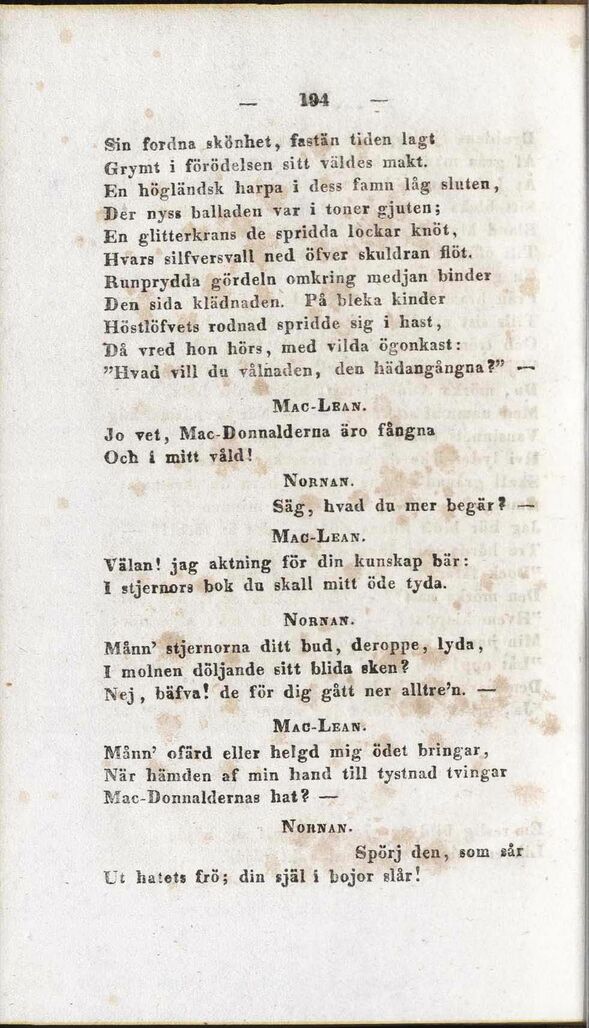 — 194 —
Sin fordna skönhet, fastän tiden lagt
Grymt i förödelsen sitt väldes makt.
En högländsk harpa i dess famn låg sluten,
Der nyss balladen var i toner gjuten;
En glitterkrans de spridda lockar knöt,
Hvars silfversvall ned öfver skuldran flöt.
Runprydda gördeln omkring medjan binder
Den sida klädnaden. På bleka kinder
Höstlöfvets rodnad spridde sig i hast,
Då vred hon hörs, med vilda ögonkast:
”Hvad vill du vålnaden, den hädangångna?” —
MAC-LEAN.
Jo vet, Mac-Donnalderna äro fångna
Och i mitt våld!
NORNAN.
Säg, hvad du mer begär? —
MAC-LEAN.
Välan! jag aktning för din kunskap bär:
I stjernors bok du skall mitt öde tyda.
NORNAN.
Månn’ stjernorna ditt bud, deroppe, lyda,
I molnen döljande sitt blida sken?
Nej, bäfva! de för dig gått ner alltre’n. —
MAC-LEAN.
Månn’ ofärd eller helgd mig ödet bringar,
När hämden af min hand till tystnad tvingar
Mac-Donnaldernas hat? —
NORNAN.
Spörj den, som sår
Ut hatets frö; din själ i bojor slår!